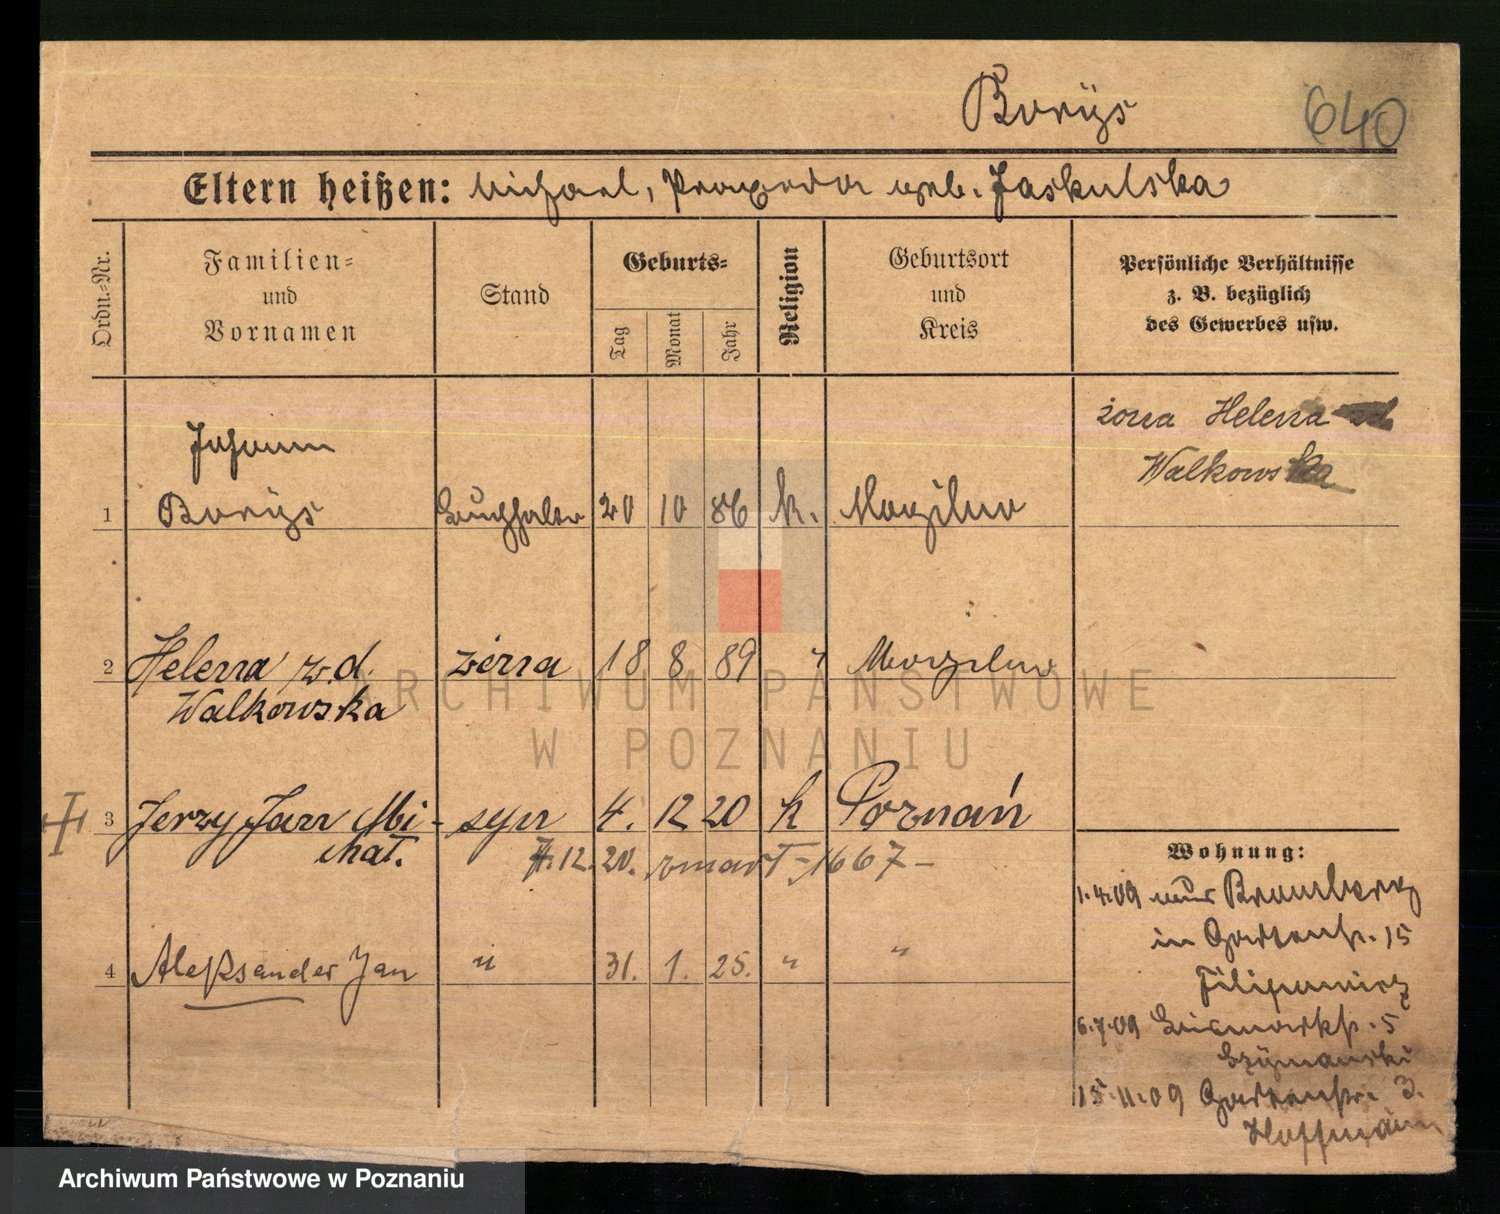 Borÿs
640
Eltern heißen: Michael, Praxeda geb. Jaskulska
Ordn.-Nr.
Familien-
und
Vornamen
Stand
Geburts-
Tag
Monat
Jahr
Religion
Geburtsort
und
Kreis
Persönliche Verhältnisse
z. B. bezüglich
des Gewerbes usw.
żona Helena
Walkowska
Johann
1 Borÿs Buchhalter 20 10 86 k. Mogilno
2 Helena z. d. żona 18 8 89 " Mogilno
Walkowska
3 Jerzy Jan Mi- syn 4. 12 20 k Poznań
chał. 12. 20. zmarł - 1667 -
4 Aleksander Jan " 31. 1. 25. " "
Wohnung:
1.4.09 aus Bromberg
in Gartenstr. 15
Filipowicz
6.7.09 Bismarckstr. 5
Szÿmanski
15.11.09 Gartenstr. 3.
Hoffmann
ARCHIWUM PAŃSTWOWE
W POZNANIU
Archiwum Państwowe w Poznaniu